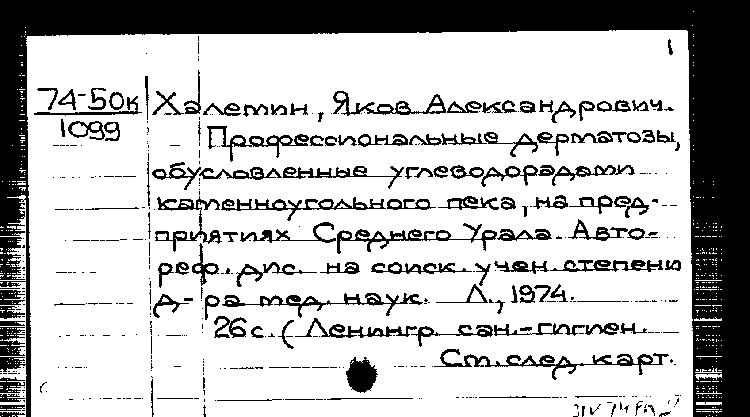 1
74-50к Халемин, Яков Александрович.
1099
Профессиональные дерматозы,
обусловленные углеводородами
каменноугольного пека, на пред-
приятиях Среднего Урала. Авто-
реф. дис. на соиск. учен. степени
д-ра мед. наук. Л., 1974.
26 с. (Ленингр. сан.-гигиен.
См. след. карт.